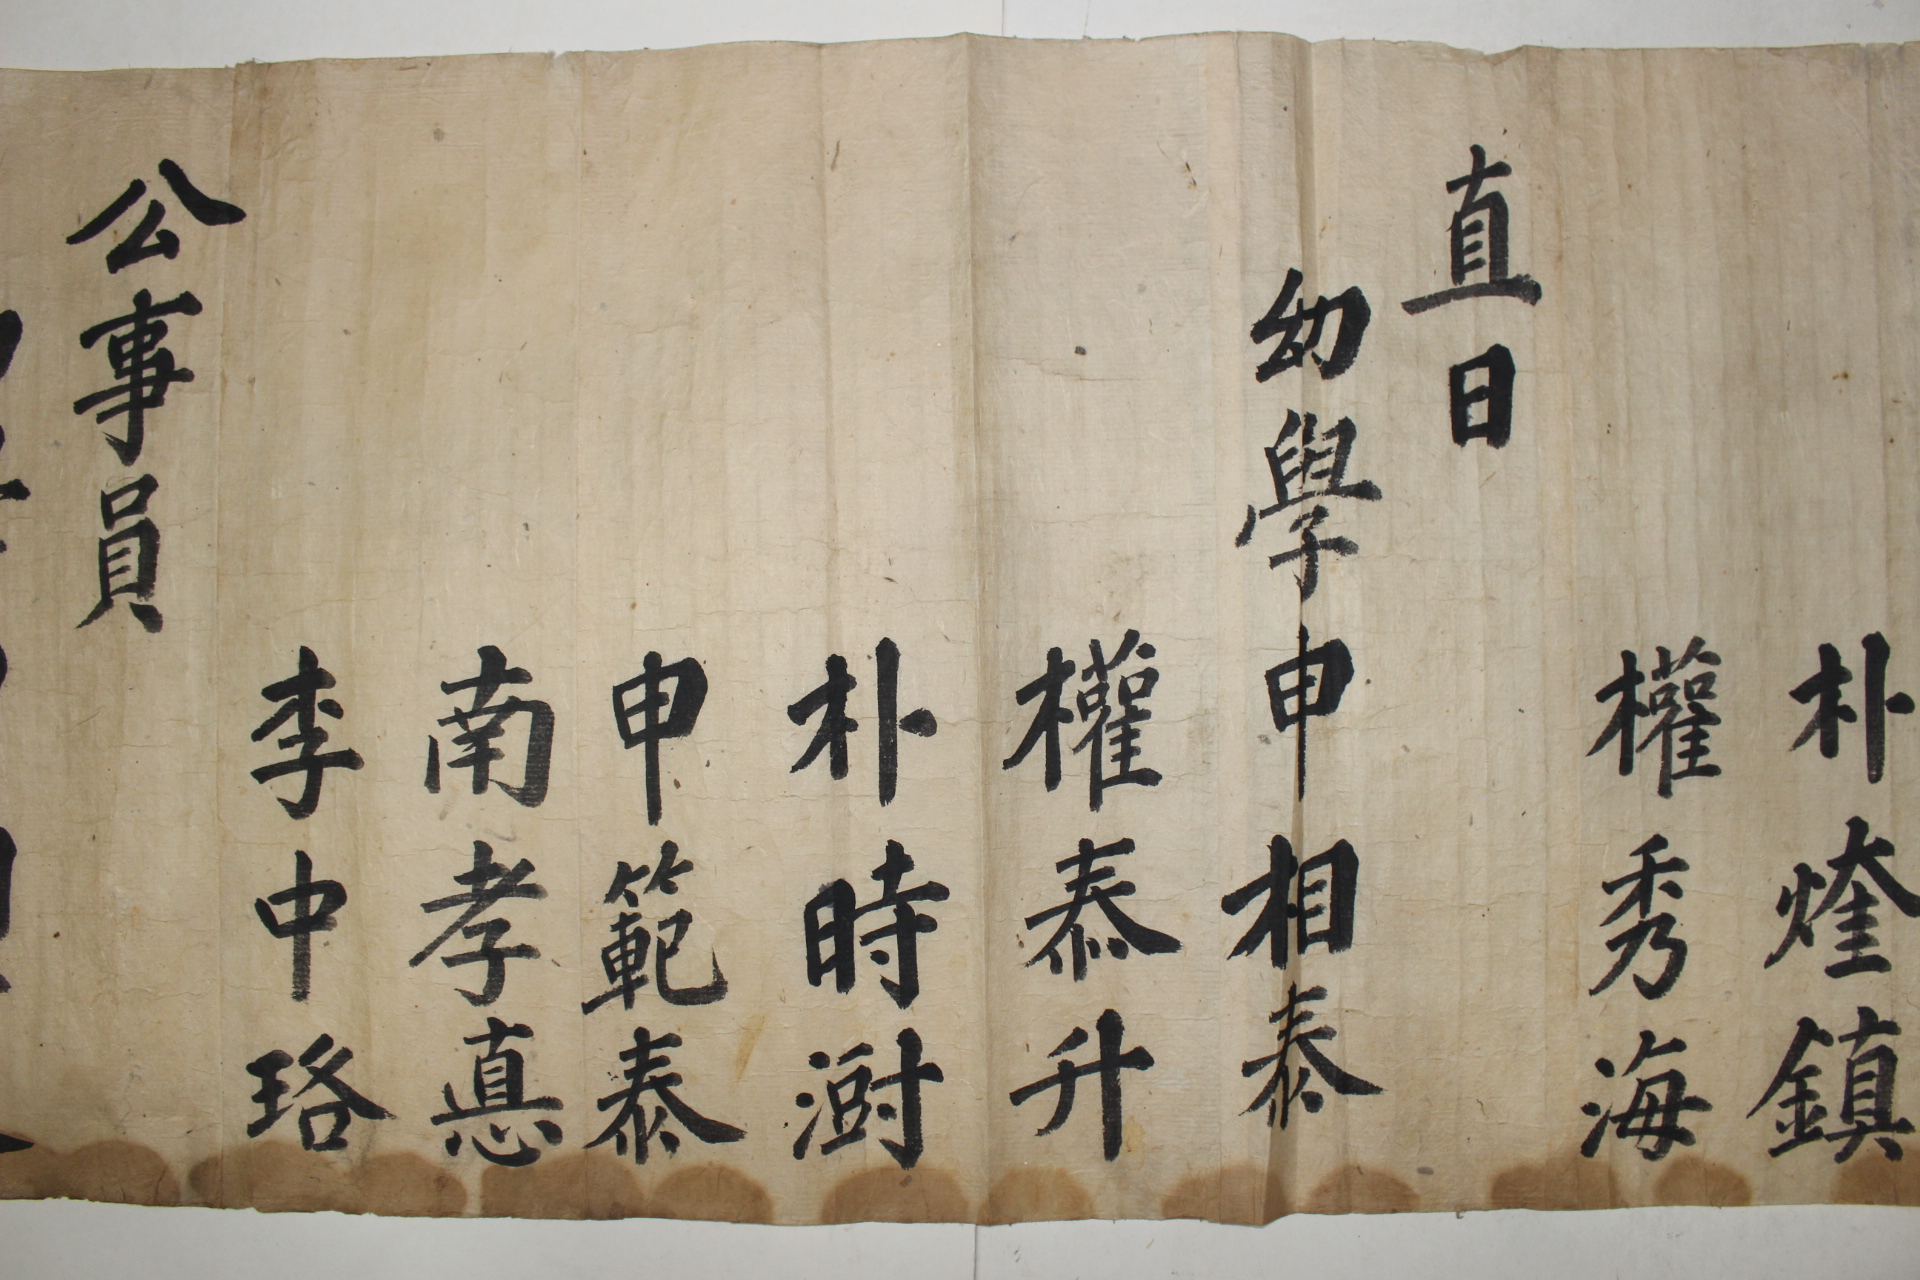 朴煃鎭
權秀海
直日
幼學申相泰
權泰升
朴時澍
申範泰
南孝悳
李中珞
公事員